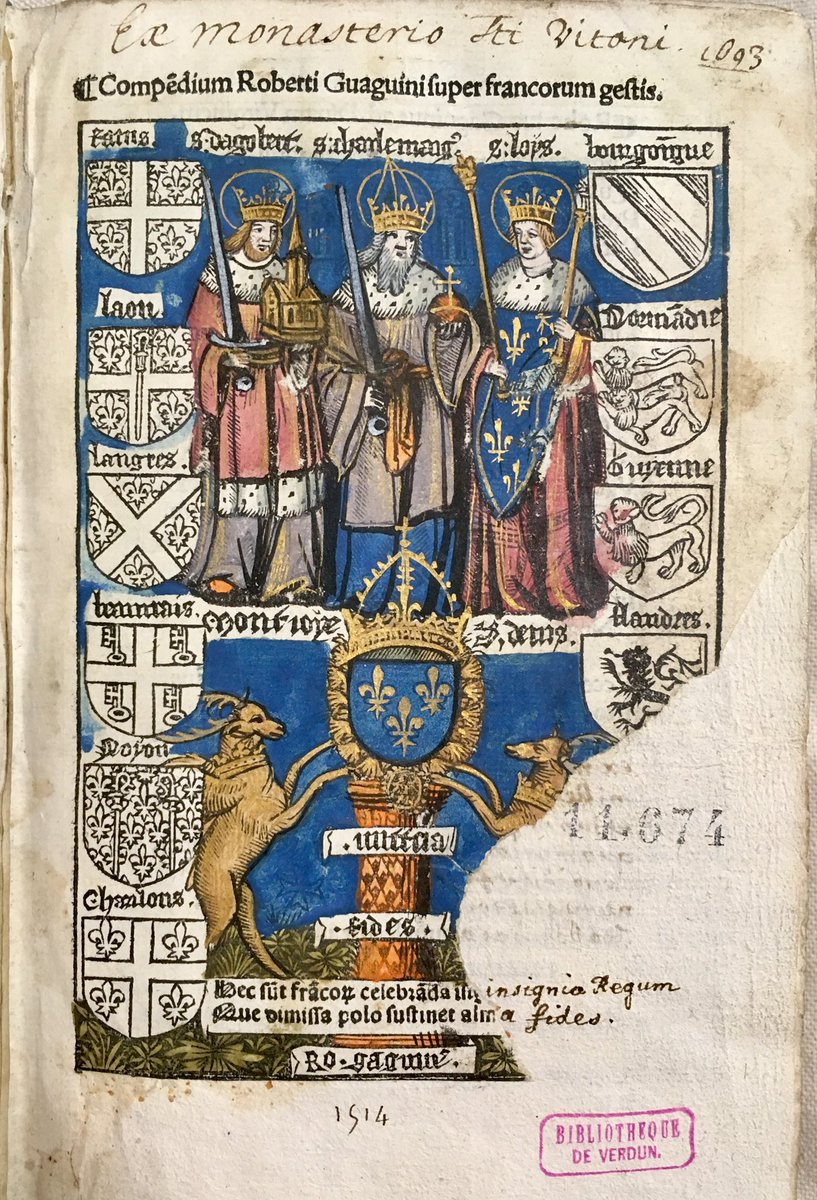 Ex monasterio Sti Vitoni. 1693
¶Compēdium Roberti Guaguini super francorum gestis.
s:dagobert. s:charlemaigꝰ. s:loys. bourgōngue
laon.
Normādie
langres.
Guyenne
beauuais.
Montioye
S. denis.
flandres.
Noyon
11.674
iusticia
Chaalons.
.fides.
Hec sūt frācoꝝ celebrāda insignia Regum
Que dimissa polo sustinet alma fides.
RO. gaguinꝰ.
1514
BIBLIOTHEQUE
DE VERDUN.